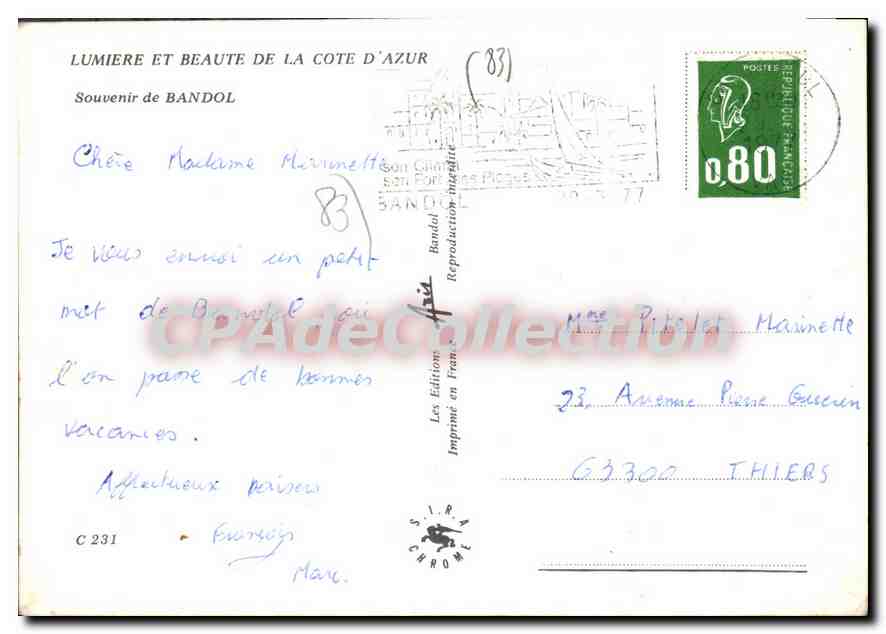 LUMIERE ET BEAUTE DE LA COTE D'AZUR
Souvenir de BANDOL
(83)
Chère Madame Marinette
83)
Je vous envoi un petit
mot de Bandol, où
l'on passe de bonnes
vacances.
Affectueux baisers
François
Marc.
C 231
son Climat
son Port ses Plages
BANDOL
77
Les Editions Aris Bandol
Imprimé en France Reproduction interdite
S.I.R.A
CHROME
POSTES
REPUBLIQUE FRANÇAISE
0,80
Mme Marinette
23, Avenue Pierre
63300 THIERS
CPAdeCollection